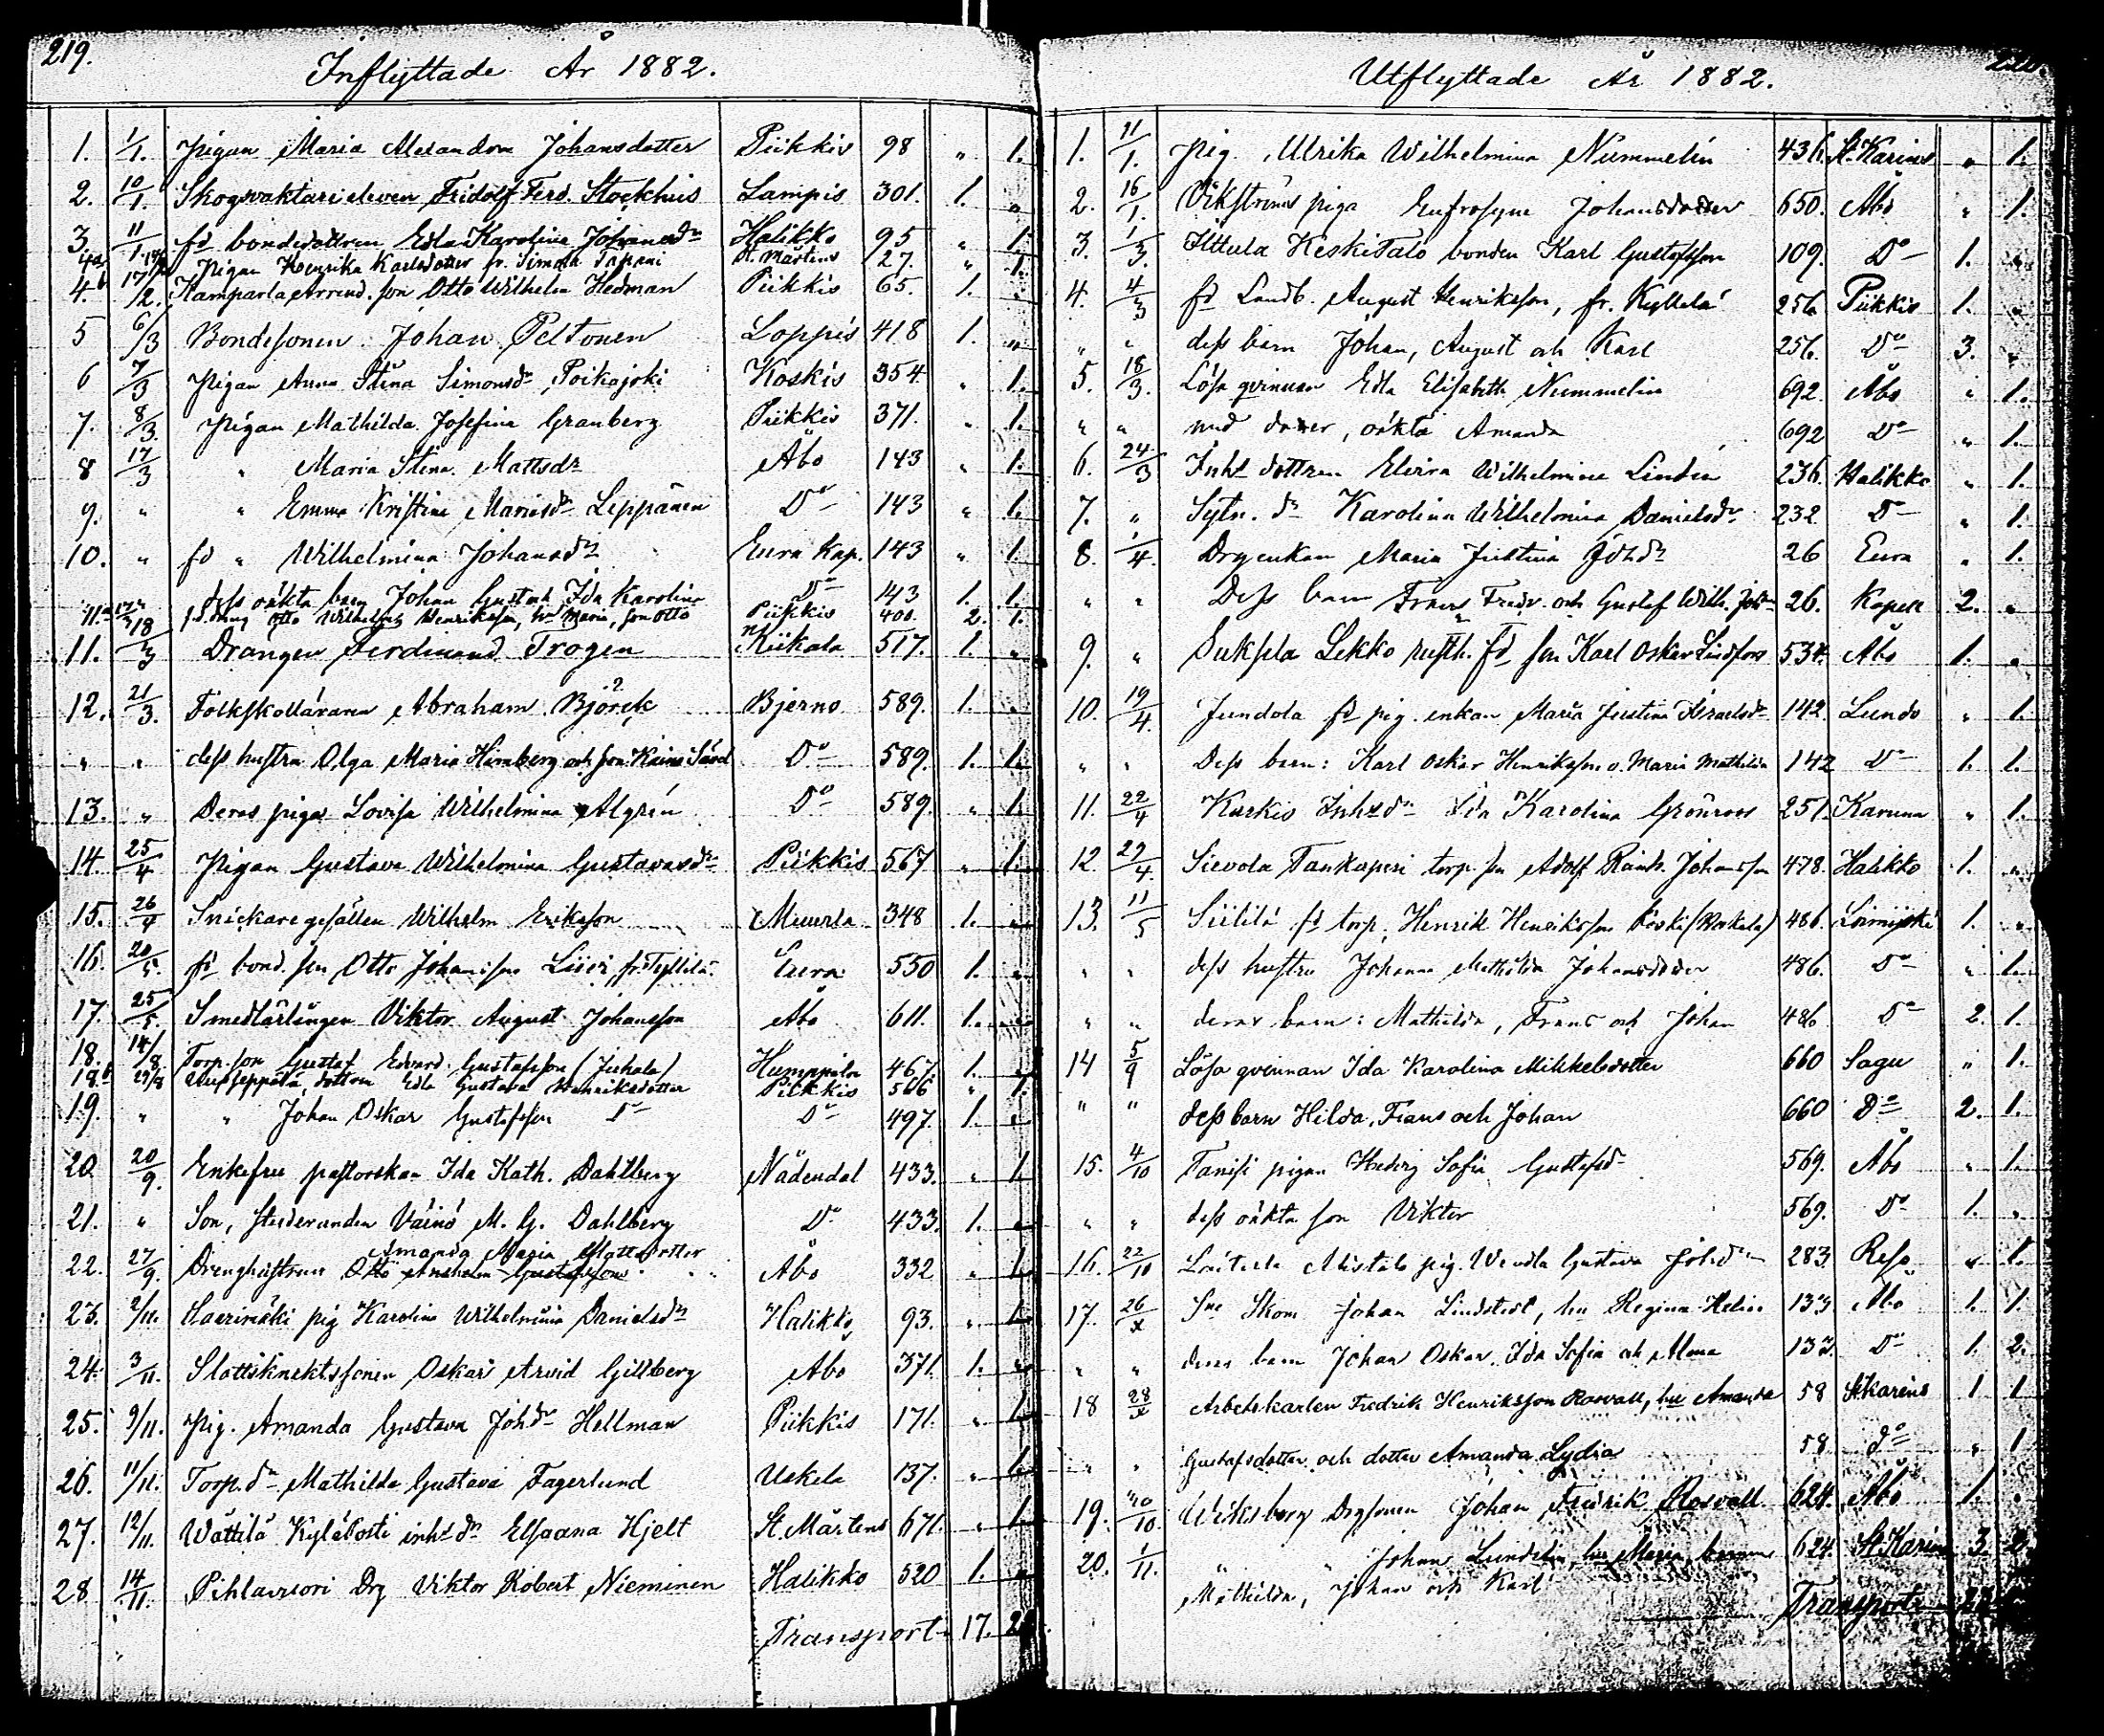 219.
Inflyttade År 1882.
1. 1/1. Pigan Maria Alexandra Johansdotter Piikkis 98 „ 1.
2. 10/1. Skogvaktarieleven Fridolf Ferd. Stockhus Lampis 301. 1. „
3. 11/1. fd bondedottren Edla Karolina Johansdr Halikko 95 „ 1.
4a Pigan Henrika Karlsdotter fr. Simola Tapani St. Mårtens 27. „ 1.
4.b 17/2. Kamparla arrend. son Otto Wilhelm Hedman Piikkis 65. 1. „
5 6/3 Bondesonen Johan Peltonen Loppis 418 1. „
6 7/3 Pigan Anna Stina Simonsdr, Poikajoki Koskis 354. „ 1.
7. 8/3. Pigan Mathilda Josefina Granberg Piikkis 371. „ 1.
8 17/3 „ Maria Stina Mattsdr Åbo 143 „ 1.
9. „ „ Emma Kristina Mariasdr Leppänen Do 143 „ 1.
10. „ fd „ Wilhelmina Johansdr Eura Kap. 143 „ 1.
dess oäkta barn Johan Gustaf, Ida Karolina Do 143 1. 1.
11.a Otto Wilhelm Henriksson, hu Maria, son Otto Piikkis 400. 2. 1.
11. 18/3 Drängen Ferdinand Trogen Kiikala 517. 1. „
12. 21/3. Folkskolläraren Abraham Björck Bjerno 589. 1. „
„ „ dess hustru Olga Maria Himberg och son Kaino Do 589. 1. 1.
13. „ Deras piga Lovisa Wilhelmina Algrén Do 589. „ 1.
14 25/4 Pigan Gustava Wilhelmina Gustavasdr Piikkis 567 „ 1.
15. 26/4 Snickaregesällen Wilhelm Eriksson Muurla 348 1. „
16. 20/5. fd bond. son Otto Johansson fr. Eura 550 1. „
17. 25/5. Smedlärlingen Viktor August Johansson Åbo 611. 1. „
18. 14/8 Torp. son Gustaf Edvard Gustafsson (Juhala) Humppila 467. 1. „
18.b 29/8 dottren Edla Gustava Henriksdotter Piikkis 566 „ 1.
19. „ „ Johan Oskar Gustafsson Do Do 497. 1. „
20 20/9. Enkefru pastorskan Ida Kath. Dahlberg Nådendal 433. „ 1.
21. „ Son, studeranden Väinö M. G. Dahlberg Do 433. 1. „
Amanda Maria Mattsdotter
22. 27/9. Drenghustrun Otto Anshelm Gustafsson Åbo 332 „ 1.
23. 2/11. pig Karolina Wilhelmina Danielsdr Halikko 93. „ 1.
24. 3/11. Slottsknektssonen Oskar Arvid Gillberg Åbo 371. 1. „
25. 9/11. Pig. Amanda Gustava Johdr Hellman Piikkis 171. „ 1.
26. 11/11. Torp.dr Mathilda Gustava Fagerlund Uskela 137. „ 1.
27. 12/11. Wättilä Kyläposti inhs dr Elsaana Hjelt St. Mårtens 671. „ 1.
28 14/11. Pihlavuori Drg Viktor Robert Nieminen Halikko 520 1. „
Transport 17.
Utflyttade År 1882.
1. 11/1. Pig. Ulrika Wilhelmina Nummelin 436. St. Karins „ 1.
2. 16/1. Vikströms piga Eufrosyne Johansdotter 650. Åbo „ 1.
3. 1/3. Ittula Keskitalo bonden Karl Gustafsson 109. Do 1. „
4. 4/3 fd Landb. August Henriksson, fr. Kyllelä 256 Piikkis 1. „
„ „ dess barn Johan, August och Karl 256. Do 3. „
5. 18/3. Lösa qvinnan Edla Elisabeth Nummelin 692. Åbo „ 1.
„ „ med dotter, oäkta Amanda 692 Do „ 1.
6. 24/3 Inhs dottren Elvira Wilhelmina Lindén 236. Halikko „ 1.
7. „ Sytn. dr Karolina Wilhelmina Danielsdr 232 Do „ 1.
8. 1/4. Drgenkan Maria Justina Johdr 26 Eura „ 1.
„ „ Dess barn Frans Fredr. och Gustaf Wilh. 26. Kapell 2. „
9. „ Suksela Lekko rusth. fd son Karl Oskar Lindfors 534. Åbo 1. „
10. 19/4. Jundola fd pig. enkan Maria Justina Israelsdr 142. Lundo „ 1.
„ „ Dess barn: Karl Oskar Henriksson o. Maria Mathilda 142 Do 1. 1.
11. 22/4 Karkis Inhs dr Ida Karolina Grönroos 251. Karuna „ 1.
12 29/4. Sievola Tankaperi torp. son Adolf Reinh. Johansson 478. Halikko 1. „
13. 11/5 Siililä fd torp. Henrik Henriksson 486. Loimijoki 1. „
„ „ dess hustru Johanna Mathilda Johansdotter 486. Do „ 1.
„ „ deras barn: Mathilda, Frans och Johan 486 Do 2. 1.
14 5/9 Lösa qvinnan Ida Karolina Mikkelsdotter 660 Sagu „ 1.
„ „ dess barn Hilda, Frans och Johan 660 Do 2. 1.
15. 4/10 Tanisi pigan Hedvig Sofia Gustafsdr 569. Åbo „ 1.
„ „ dess oäkta son Viktor 569. Do 1. „
16. 22/10 pig. Wendla Gustava Johdr 283. Reso „ 1.
17. 26/x Skom Johan Lindstedt, hu Regina Helin 133 Åbo 1. 1.
„ „ deras barn Johan Oskar, Ida Sofia och Alma 133. Do 1. 2.
18 28/x Arbetskarlen Fredrik Henriksson Rosvall, hu Amanda 58 St Karins 1 1
„ „ Gustafsdotter och dotter Amanda Lydia 58 do „ 1
19. 30/10. Wiksberg Drgsonen Johan Fredrik Rosvall 624. Åbo 1. „
20. 1/11. „ „ Johan Lundelin, hu Maria, barnen 624. St Karins 3. 2.
Mathilda, Johan och Karl
Transport